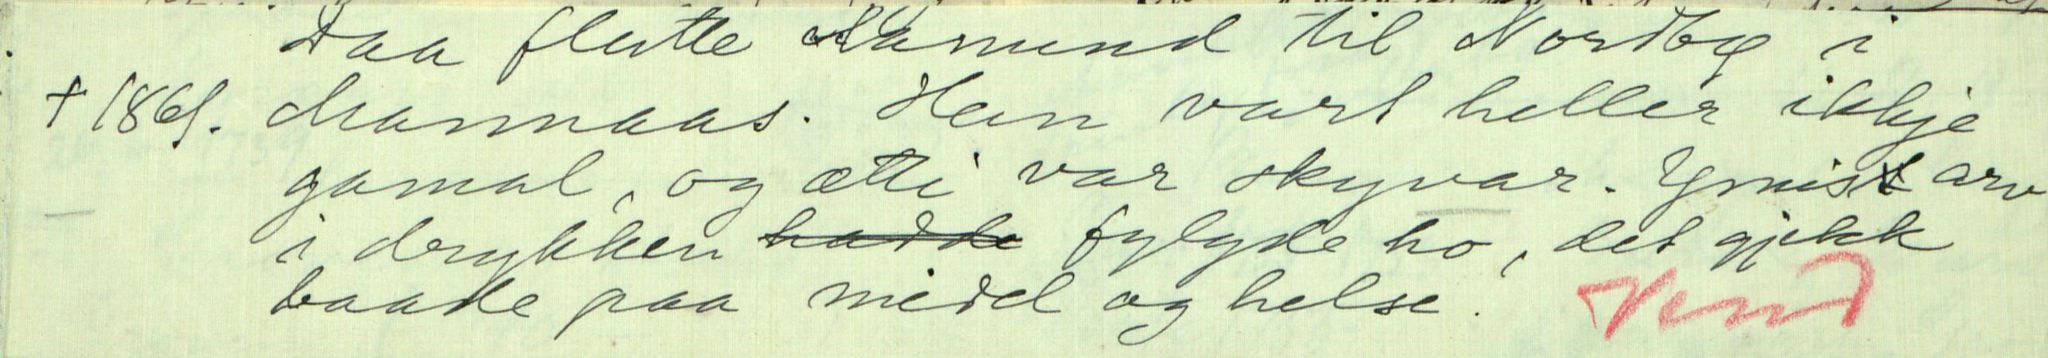 Daa flutte Aamund til Nordbø i
† 1861. Mannaas. Han vart heller ikkje
gamal, og ætti var skyvar. Ymist arv
i drykken hadde fylgde ho, det gjekk
baade paa midel og helse.
Vend